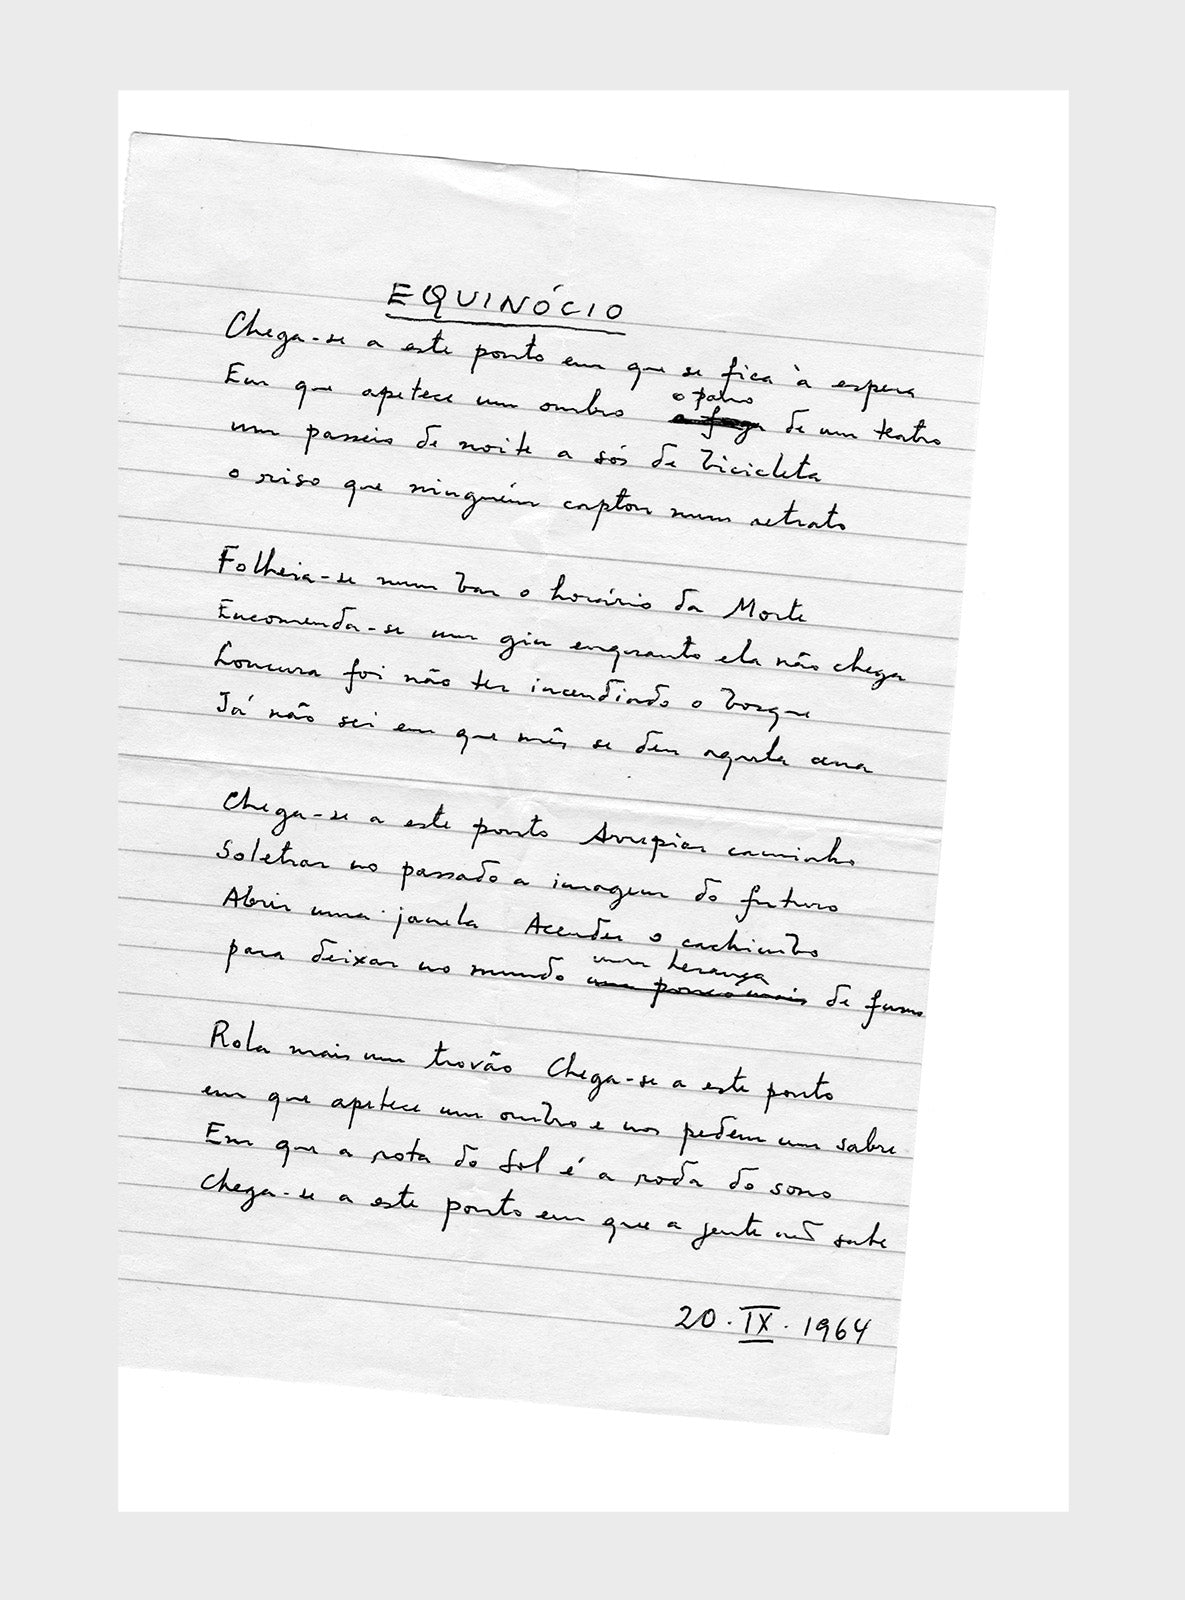 EQUINÓCIO
Chega-se a este ponto em que se fica à espera
Em que apetece um ombro o pano de um teatro
um passeio de noite a sós de bicicleta
o riso que ninguém captou num retrato
Folheia-se num bar o horário da Morte
Encomenda-se um gin enquanto ela não chega
Loucura foi não ter incendiado o bosque
Já não sei em que mês se deu aquela cena
Chega-se a este ponto Arrepiar caminho
Soletrar no passado a imagem do futuro
Abrir uma janela Acender o cachimbo
para deixar no mundo uma herança de fumo
Rola mais um trovão Chega-se a este ponto
em que apetece um ombro e nos pedem um sabre
Em que a rota do Sol é a roda do sono
Chega-se a este ponto em que a gente não sabe
20 · IX · 1964